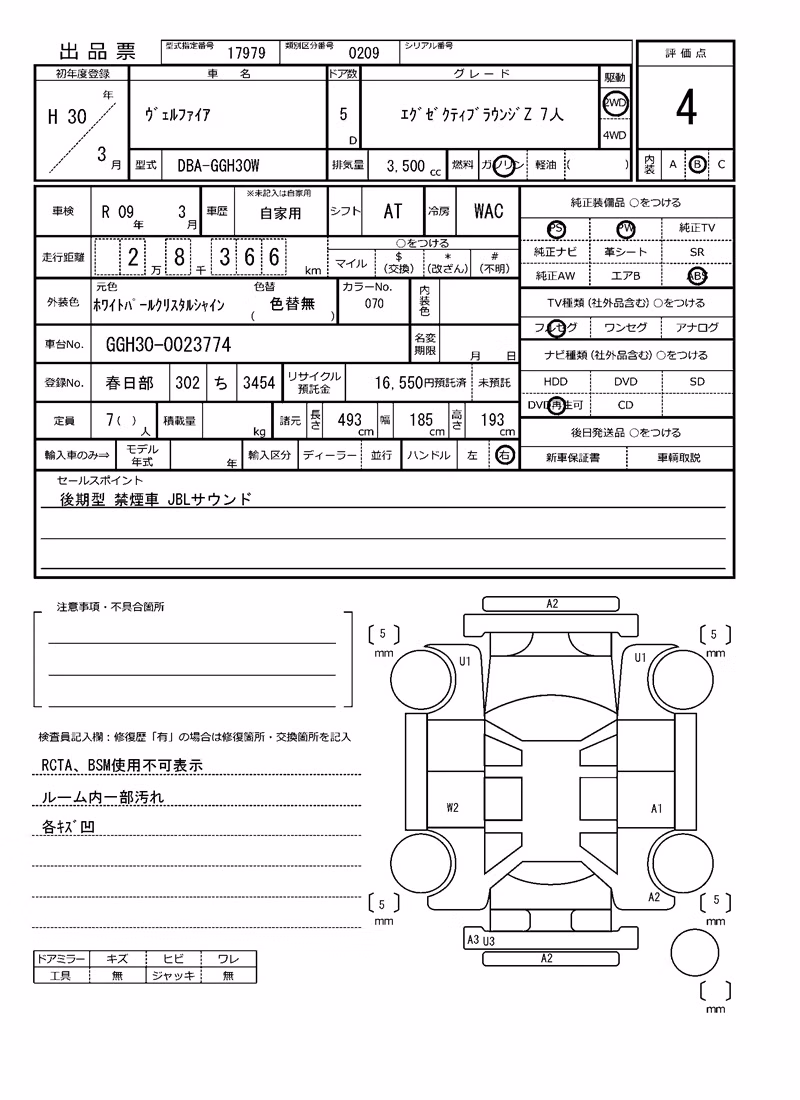 出品票 型式指定番号 17979 類別区分番号 0209 シリアル番号
評価点
4
内装 A B C
初年度登録 車名 ドア数 グレード 駆動
H 30 年 3 月 ヴェルファイア 5 D エグゼクティブラウンジZ 7人 2WD 4WD
型式 DBA-GGH30W 排気量 3,500 cc 燃料 ガソリン 軽油 ( )
車検 R 09 年 3 月 車歴 ※未記入は自家用 自家用 シフト AT 冷房 WAC
走行距離 2 万 8 千 3 6 6 km ○をつける
マイル $ (交換) * (改ざん) # (不明)
外装色 元色 ホワイトパールクリスタルシャイン 色替 ( 色替無 ) カラーNo. 070 内装色
車台No. GGH30-0023774 名変期限 月 日
登録No. 春日部 302 ち 3454 リサイクル預託金 16,550円預託済 未預託
定員 7( ) 人 積載量 kg 諸元 長さ 493 cm 幅 185 cm 高さ 193 cm
輸入車のみ⇒ モデル年式 年 輸入区分 ディーラー 並行 ハンドル 左 右
純正装備品 ○をつける
PS PW 純正TV
純正ナビ 革シート SR
純正AW エアB ABS
TV種類(社外品含む)○をつける
フルセグ ワンセグ アナログ
ナビ種類(社外品含む)○をつける
HDD DVD SD
DVD再生可 CD
後日発送品 ○をつける
新車保証書 車輌取説
セールスポイント
後期型 禁煙車 JBLサウンド
注意事項・不具合箇所
検査員記入欄:修復歴「有」の場合は修復箇所・交換箇所を記入
RCTA、BSM使用不可表示
ルーム内一部汚れ
各キズ凹
ドアミラー キズ ヒビ ワレ
工具 無 ジャッキ 無
A2
5 mm
5 mm
U1
U1
W2
A1
A2
5 mm
5 mm
A3 U3
A2
mm